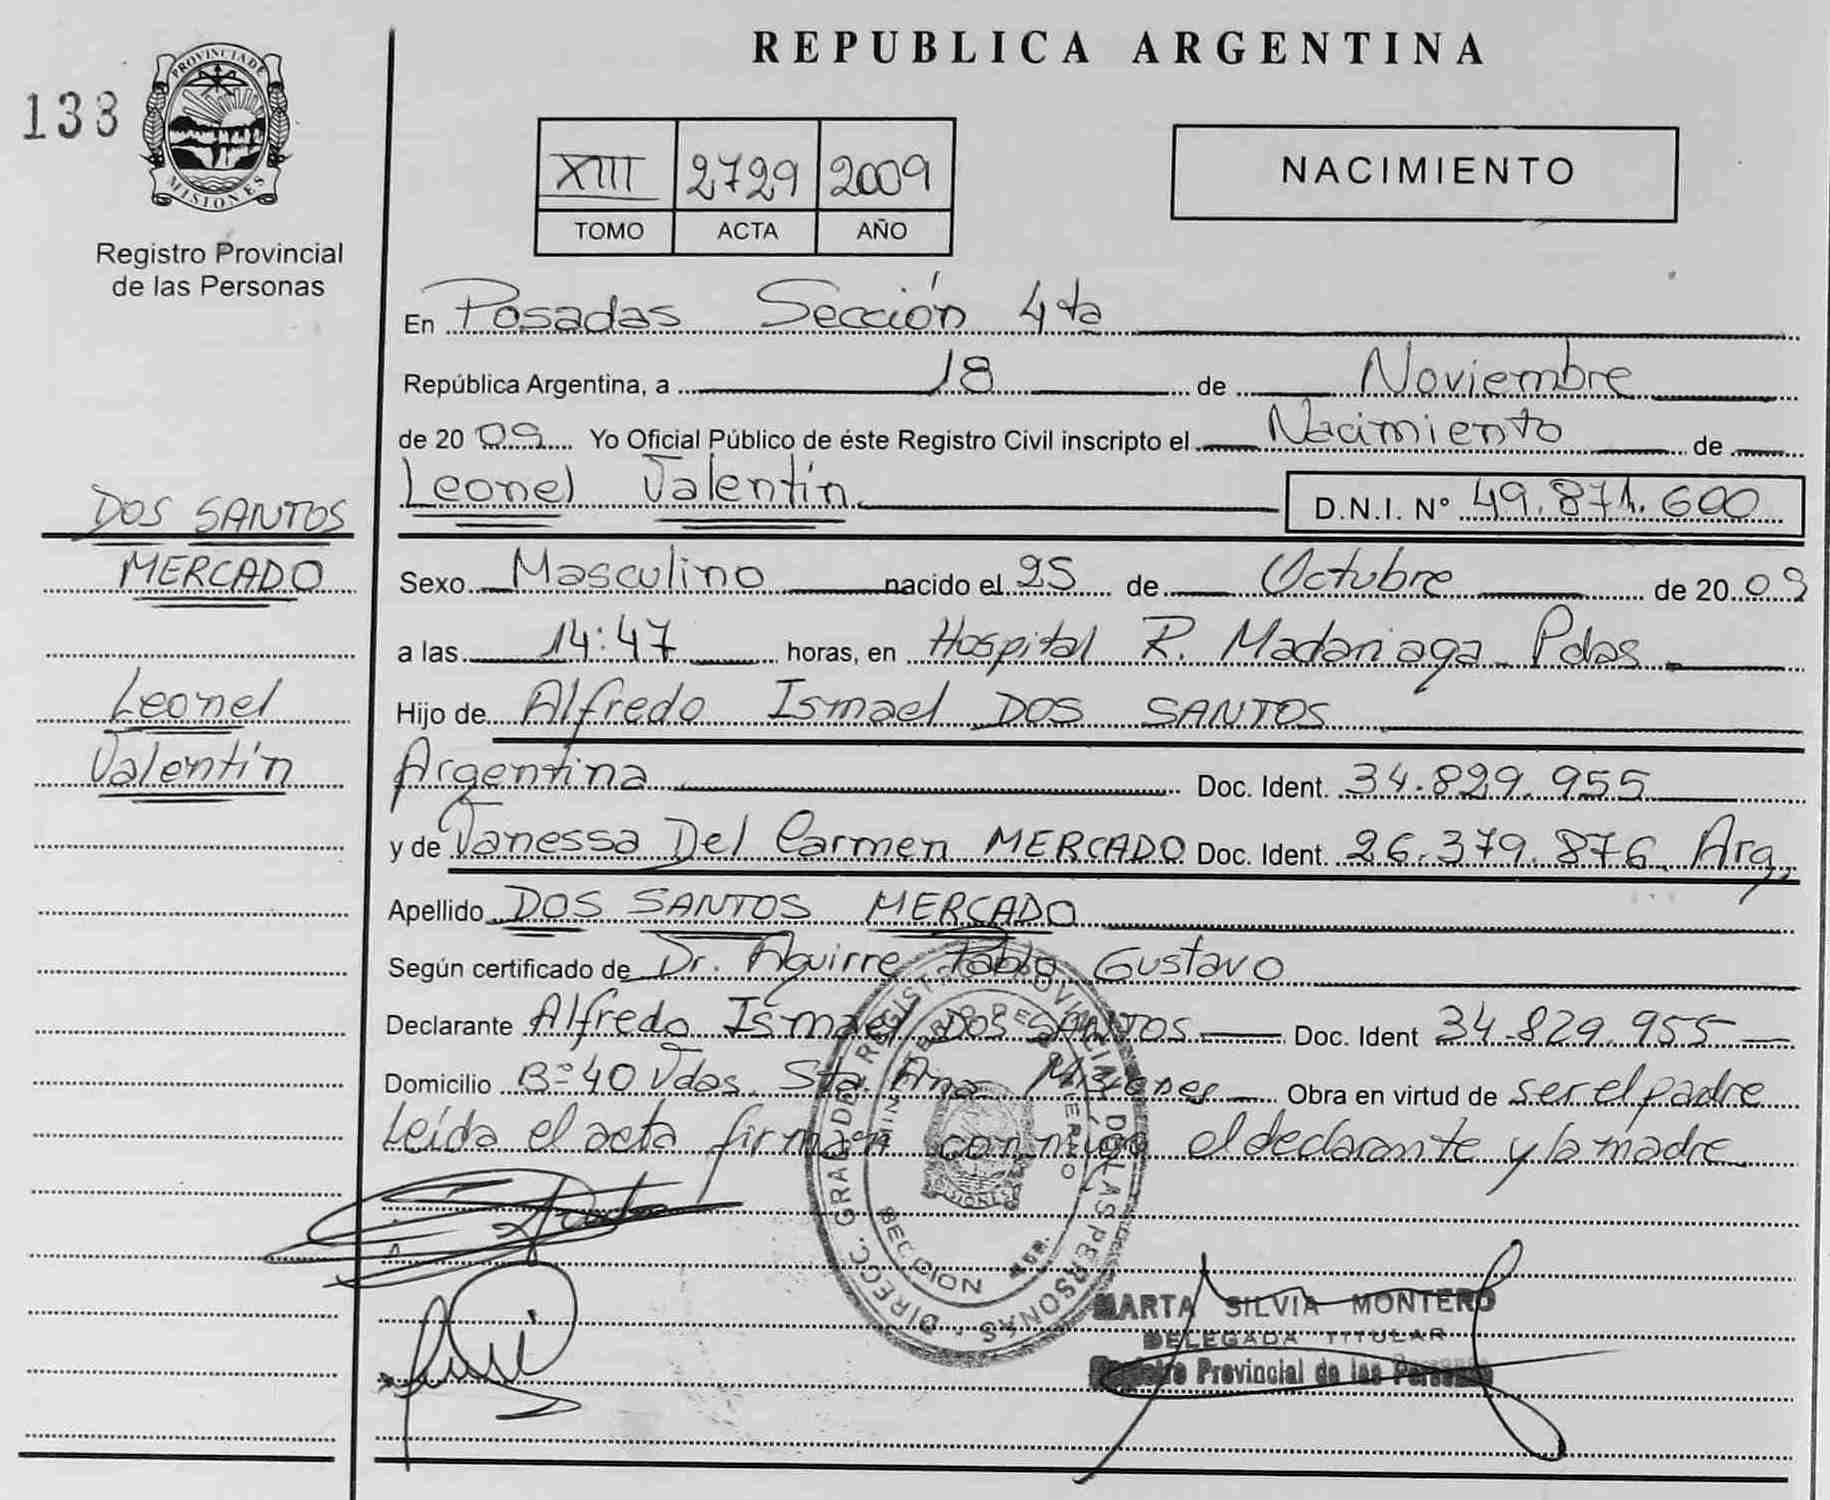 REPUBLICA ARGENTINA
133
PROVINCIA DE
MISIONES
Registro Provincial
de las Personas
XIII 2729 2009
TOMO ACTA AÑO
NACIMIENTO
En Posadas Sección 4ta
República Argentina, a 18 de Noviembre
de 20 09 Yo Oficial Público de éste Registro Civil inscripto el Nacimiento de
Leonel Valentín
D.N.I. N° 49.871.600
DOS SANTOS
MERCADO
Leonel
Valentín
Sexo Masculino nacido el 25 de Octubre de 20 09
a las 14:47 horas, en Hospital R. Madariaga Pdas
Hijo de Alfredo Ismael DOS SANTOS
Argentina Doc. Ident. 34.829.955
y de Vanessa Del Carmen MERCADO Doc. Ident. 26.379.876 Arg.
Apellido DOS SANTOS MERCADO
Según certificado de Dr. Aguirre Pablo Gustavo
Declarante Alfredo Ismael DOS SANTOS Doc. Ident 34.829.955
Domicilio B= 40 Vdas. Sta. Ana Misiones Obra en virtud de ser el padre
Leída el acta firman conmigo el declarante y la madre
DIRECC. GRAL. DEL REGISTRO PROVINCIAL DE LAS PERSONAS
SECCION
MARTA SILVIA MONTERO
DELEGADA TITULAR
Registro Provincial de las Personas